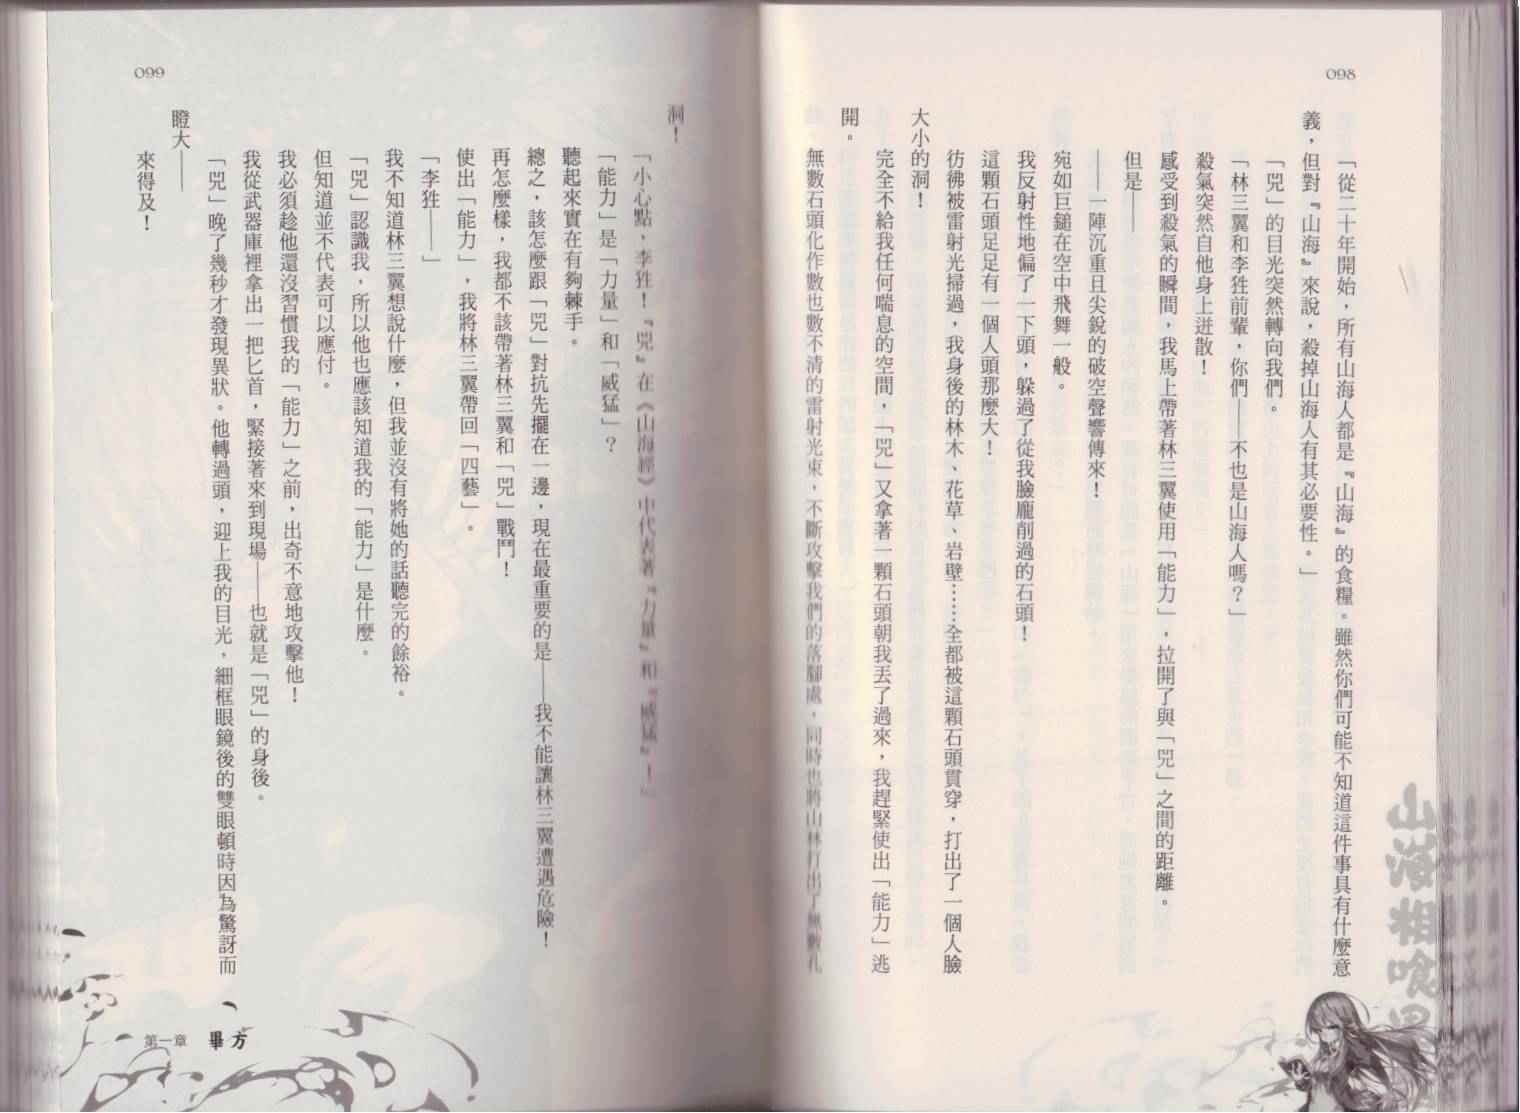 098
「從二十年開始，所有山海人都是『山海』的食糧。雖然你們可能不知道這件事具有什麼意
義，但對『山海』來說，殺掉山海人有其必要性。」
「兕」的目光突然轉向我們。
「林三翼和李狌前輩，你們——不也是山海人嗎？」
殺氣突然自他身上迸散！
感受到殺氣的瞬間，我馬上帶著林三翼使用「能力」，拉開了與「兕」之間的距離。
但是——
——一陣沉重且尖銳的破空聲響傳來！
宛如巨鎚在空中飛舞一般。
我反射性地偏了一下頭，躲過了從我臉龐削過的石頭！
這顆石頭足足有一個人頭那麼大！
彷彿被雷射光掃過，我身後的林木、花草、岩壁……全都被這顆石頭貫穿，打出了一個人臉
大小的洞！
完全不給我任何喘息的空間，「兕」又拿著一顆石頭朝我丟了過來，我趕緊使出「能力」逃
開。
無數石頭化作數也數不清的雷射光束，不斷攻擊我們的落腳處，同時也將山林打出了無數孔
山海相喰異
099
洞！
「小心點，李狌！『兕』在《山海經》中代表著『力量』和『威猛』！」
「能力」是「力量」和「威猛」？
聽起來實在有夠棘手。
總之，該怎麼跟「兕」對抗先擺在一邊，現在最重要的是——我不能讓林三翼遭遇危險！
再怎麼樣，我都不該帶著林三翼和「兕」戰鬥！
使出「能力」，我將林三翼帶回「四藝」。
「李狌——」
我不知道林三翼想說什麼，但我並沒有將她的話聽完的餘裕。
「兕」認識我，所以他也應該知道我的「能力」是什麼。
但知道並不代表可以應付。
我必須趁他還沒習慣我的「能力」之前，出奇不意地攻擊他！
我從武器庫裡拿出一把匕首，緊接著來到現場——也就是「兕」的身後。
「兕」晚了幾秒才發現異狀。他轉過頭，迎上我的目光，細框眼鏡後的雙眼頓時因為驚訝而
瞪大——
來得及！
第一章 畢方